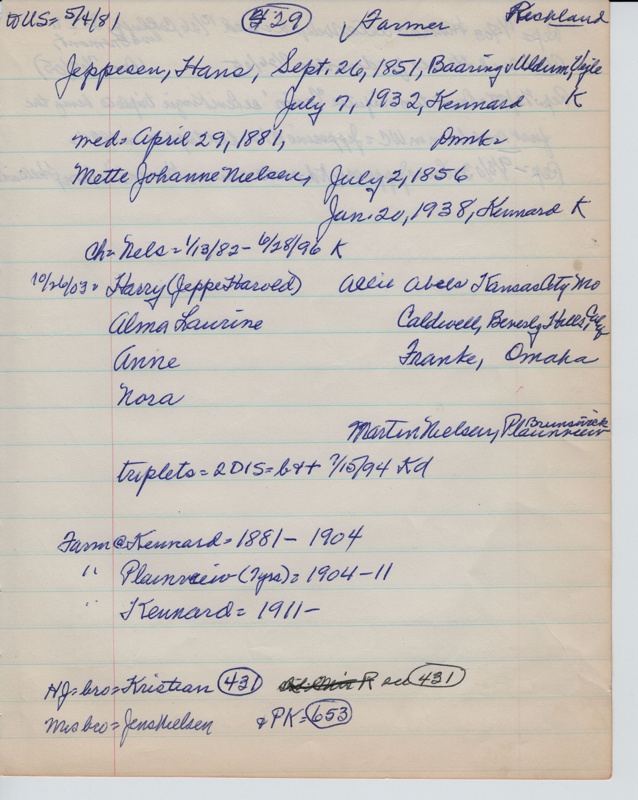 toUS= 5/4/81 429 √Farmer Richland
Jeppesen, Hans, Sept. 26, 1851, Baaring v Uldum, Vejle
July 7, 1932, Kennard K
med= April 29, 1881, Dmk
Mette Johanne Nielsen, July 2, 1856
Jan. 20, 1938, Kennard K
Ch= Nels = 1/13/82 - 6/28/96 K
10/26/03= Harry (Jeppe Harold) Allie Abels Kansas City Mo
Alma Laurine Caldwell, Beverly Hills, Calif
Anne Franke, Omaha
Nora
Martin Nielsen, Plainview Brunswick
triplets = 2 D1S = b&+ 7/15/94 Kd
Farm @ Kennard = 1881 - 1904
" Plainview (7yrs) = 1904-11
" Kennard = 1911-
HJ= bro= Kristian 431 R see 431
Mrs bro= Jens Nielsen & PK= 653